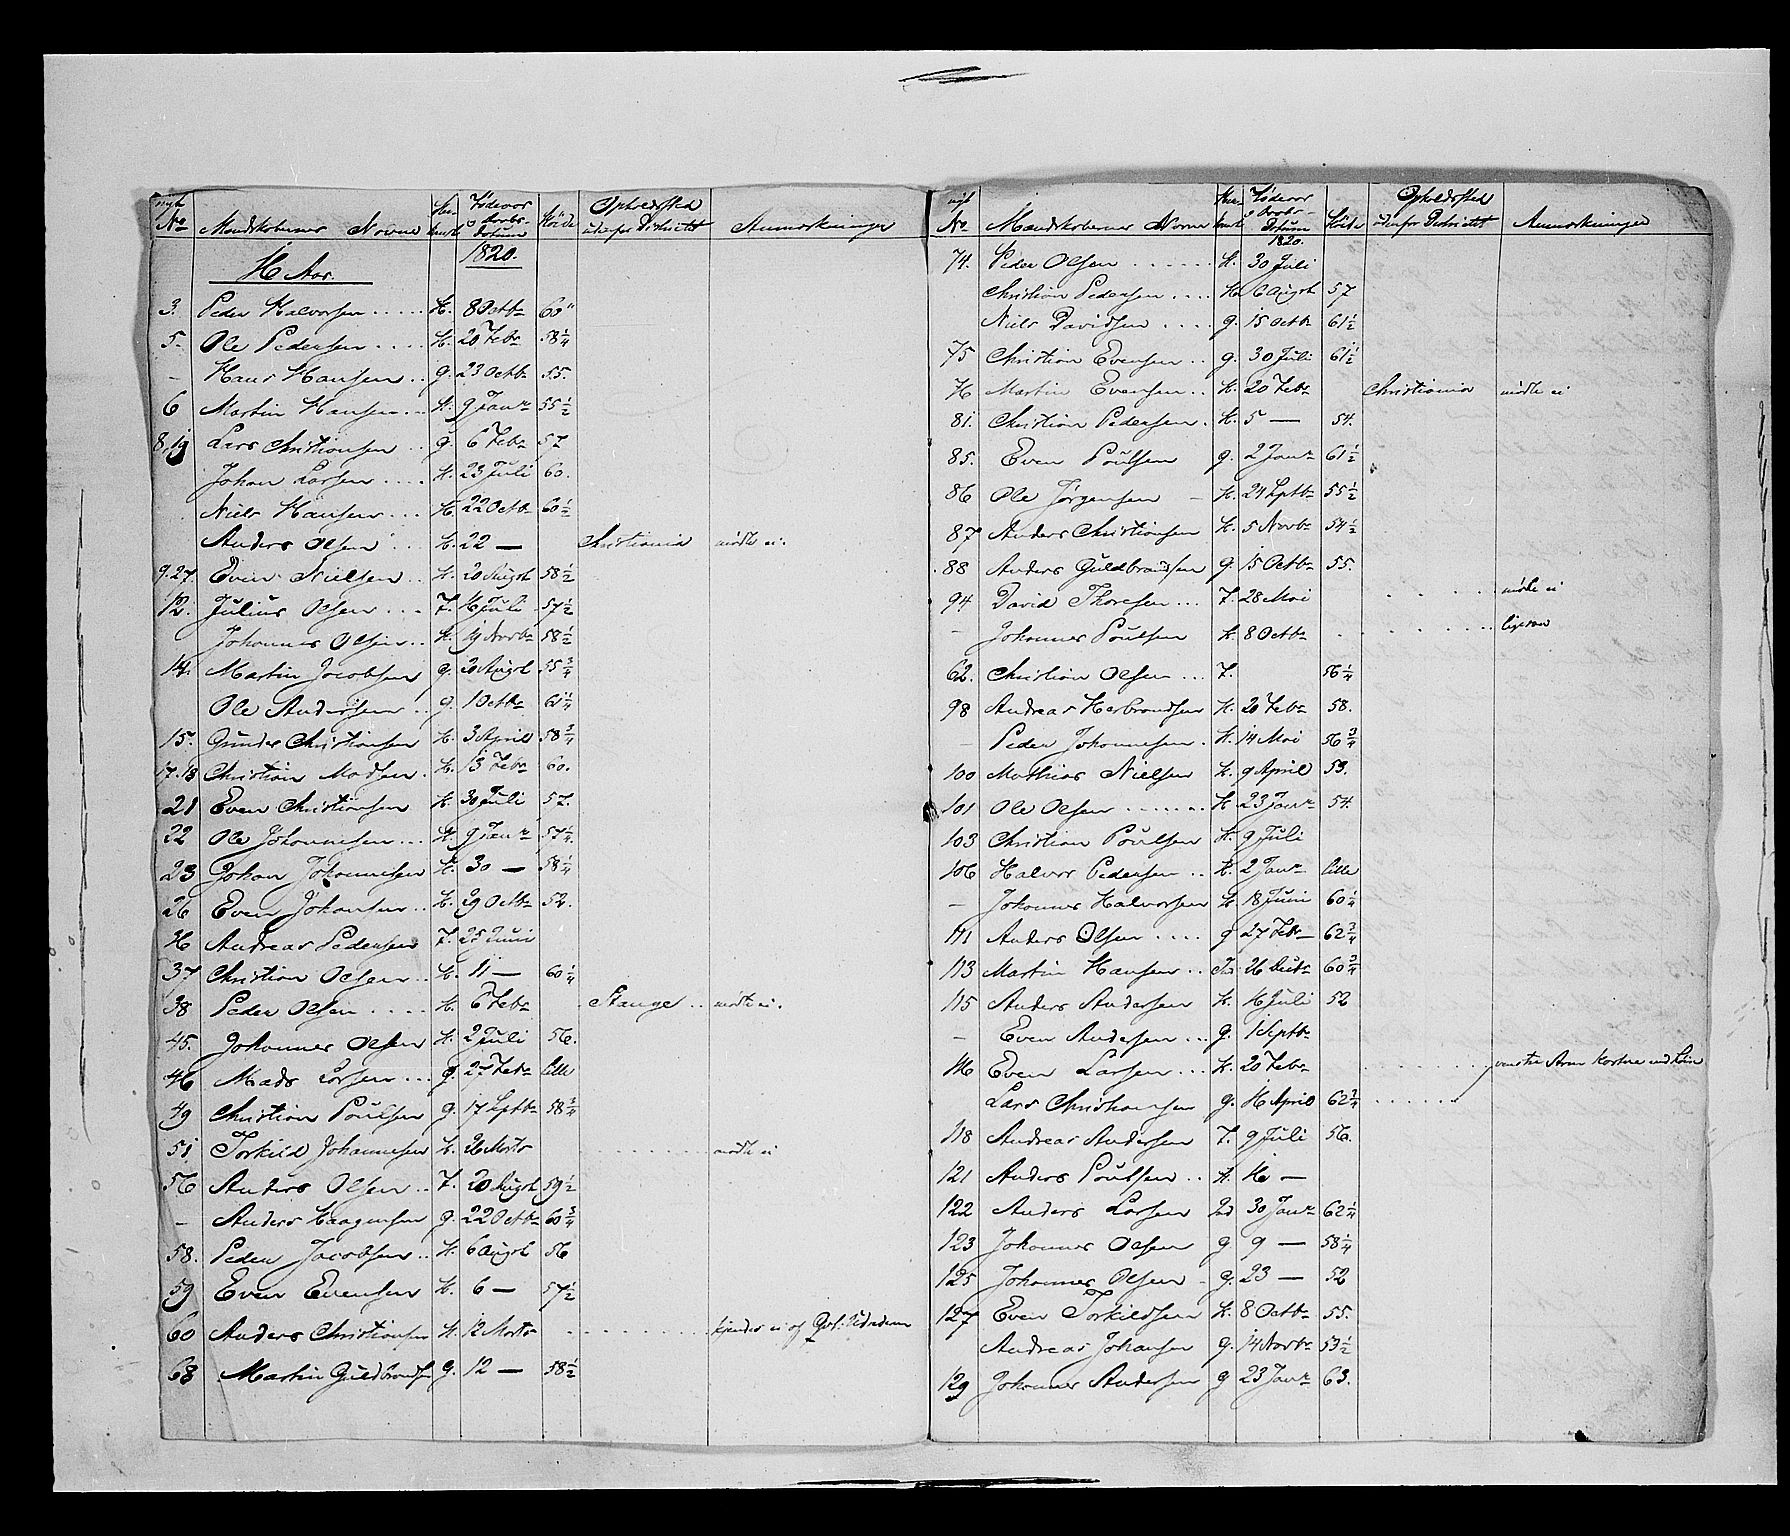 nye No Mandskabernes Navne Her- komst Födeaar & Daabs- Datum Höide Opholdssted udenfor Districtet Anmærkninger
16 Aar. 1820.
3. Peder Halvorsen H. 8 Octbr 60"
5. Ole Pedersen H. 20 Febr 58 1/4
- Hans Hansen g. 23 Octbr 55.
6 Martin Hansen H. 9 Janr 55 1/2
8.19 Lars Christiansen g. 6 Febr 57
Johan Larsen H. 23 Juli 60.
Niels Hansen H. 22 Octbr 60 1/2
Anders Olsen H. 22 — Christiania mödte ei.
9.27 Even Nielsen H. 20 Augst 58 1/2
12. Julius Olsen F. 16 Juli 57 1/2
Johannes Olsen H. 19 Novbr 58 1/2
14. Martin Jacobsen g. 20 Augst 55 3/4
Ole Andersen g. 1 Octbr 61 1/4
15. Gunder Christiansen H. 3 April 58 3/4
17.18 Christian Madsen H. 13 Febr 60.
21 Even Christiansen H. 30 Juli 57.
22 Ole Johannesen H. 9 Janr 57 1/4
23 Johan Johannesen H. 30 — 58 1/4
26 Even Johansen H. 29 Octbr 52.
36 Andreas Pedersen F. 25 Juni
37 Christian Olsen H. 11 — 60 1/4
38 Peder Olsen H. 6 Febr Stange mödte ei.
45. Johannes Olsen H. 2 Juli 56.
46 Mads Larsen g. 27 Febr lille
49 Christian Poulsen g. 17 Septbr 58 3/4
51 Torkild Johannesen H. 26 Marts mödte ei
56 Anders Olsen F. 20 Augst 59 1/2
- Anders Haagensen g. 22 Octbr 60 3/4
58. Peder Jacobsen H. 6 Augst 56
59 Even Evensen H. 6 — 57 1/2
60 Anders Christiansen H. 12 Marts kjendes ei af
68 Martin Guldbrandsen g. 12 — 58 1/2
nye No Mandskabernes Navne Her- komst Födeaar & Daabs- Datum 1820. Höide Opholdssted udenfor Districtet Anmærkninger
74. Peder Olsen H. 30 Juli
Christian Pedersen H. 6 Augst 57
Niels Davidsen g. 15 Octbr 61 1/2
75 Christian Evensen g. 30 Juli 61 1/2
76 Martin Evensen H. 20 Febr Christiania mödte ei
81. Christian Pedersen H. 5 — 54.
85. Even Poulsen g. 2 Janr 61 1/2
86 Ole Jörgensen H. 24 Septbr 55 1/2
87 Anders Christiansen H. 5 Novbr 54 1/2
88 Anders Guldbrandsen g. 15 Octbr 55.
94 David Thoresen F. 28 Mai mödte ei
- Johannes Poulsen H. 8 Octbr ligesaa
62. Christian Olsen F. 56 1/4
98 Andreas Herbrandsen H. 20 Febr 58.
- Peder Johannesen H. 14 Mai 56 3/4
100 Mathias Nielsen H. 9 April 53.
101 Ole Olsen H. 23 Janr 54.
103 Christian Poulsen H. 9 Juli
106 Halvor Pedersen H. 2 Janr lille
- Johannes Halvorsen H. 18 Juni 60 1/4
111 Anders Olsen g. 27 Febr 62 3/4
113 Martin Hansen Ind 26 Decbr 60 3/4
115 Anders Andersen H. 16 Juli 52
- Even Andersen g. 1 Septbr
116 Even Larsen H. 20 Febr venstre Arm kortere end höire
Lars Christiansen g. 16 April 62 3/4
118 Andreas Andersen F. 9 Juli 56.
121 Anders Poulsen H. 16 —
122 Anders Larsen Ind 30 Janr 62 1/4
123 Johannes Olsen g. 9 — 58 1/4
125 Johannes Olsen g. 23 — 52
127 Even Torkildsen H. 8 Octbr 55.
Andreas Johansen g. 14 Novbr 53 1/2
129 Johannes Andersen g. 23 Janr 63.